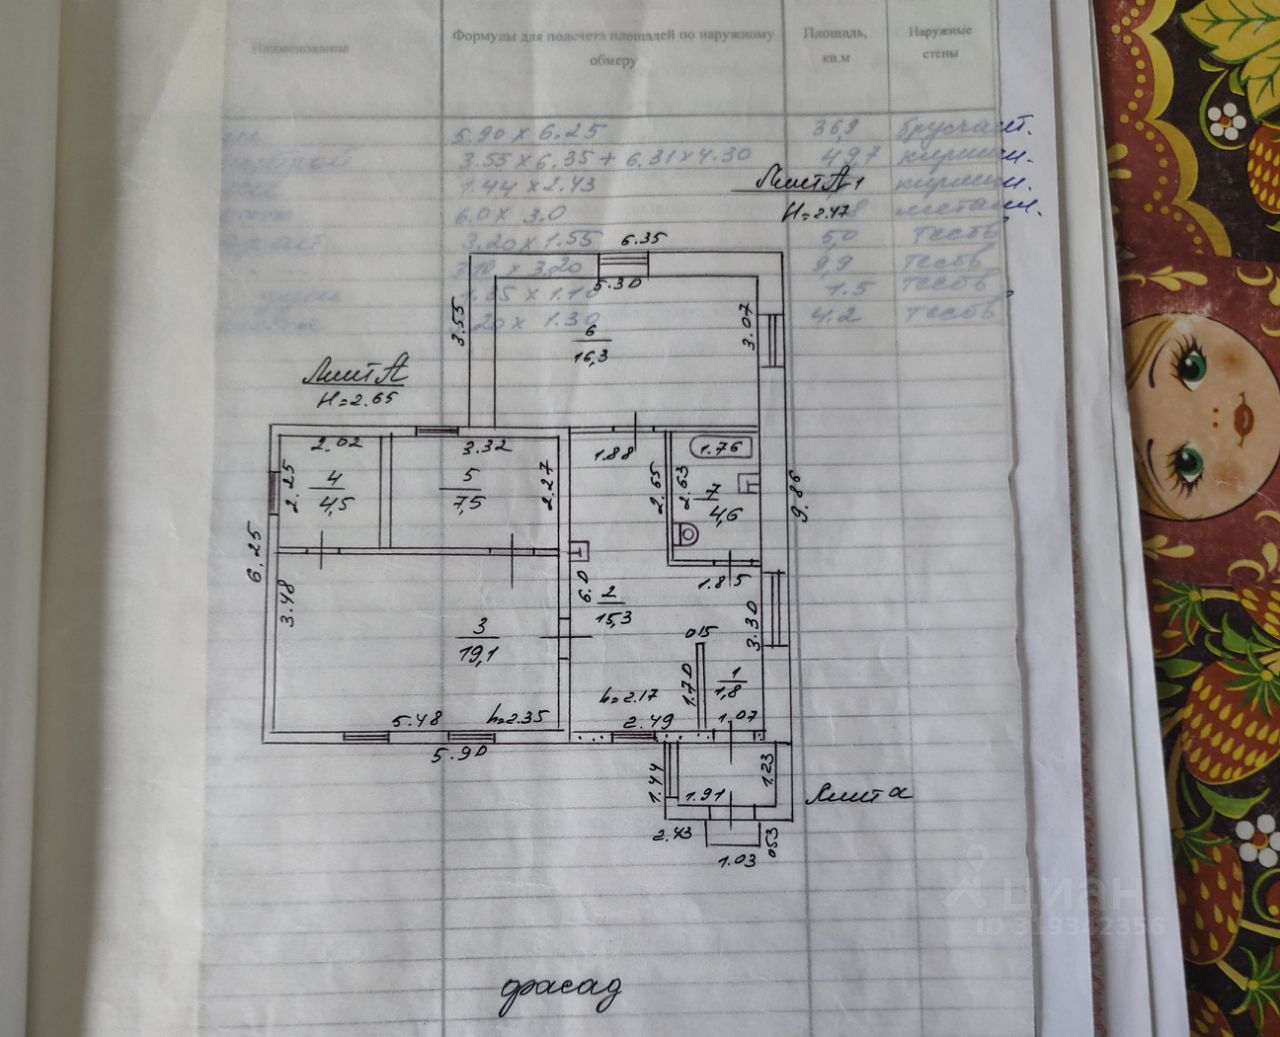 Наименование
Формулы для подсчета площадей по наружному обмеру
Площадь, кв.м
Наружные стены
5.90 x 6.25 36,9
3.55 x 6.35 + 6.31 x 4.30 49,7
1.44 x 2.43
6.0 x 3.0
3.20 x 1.55 5,0 тесов
3.10 x 3.20 9,9 тесов
1.35 x 1.10 1.5 тесов
20 x 1.30 4.2 тесов
Лит А1
H=2.47
6.35
5.30
3.55
3.07
6
16,3
Лит А
H=2.65
2.02
3.32
1.88
1.76
2.25
4
4,5
5
7,5
2.27
2.65
2.63
7
4,6
9.86
6.25
3.48
6.0
2
15,3
1.85
3
19,1
015
3.30
1.70
1
1,8
h=2.17
5.48
h=2.35
2.49
1.07
5.90
1.44
1.91
1.23
Лит а
2.43
1.03
053
фасад
циан
ID 319342356